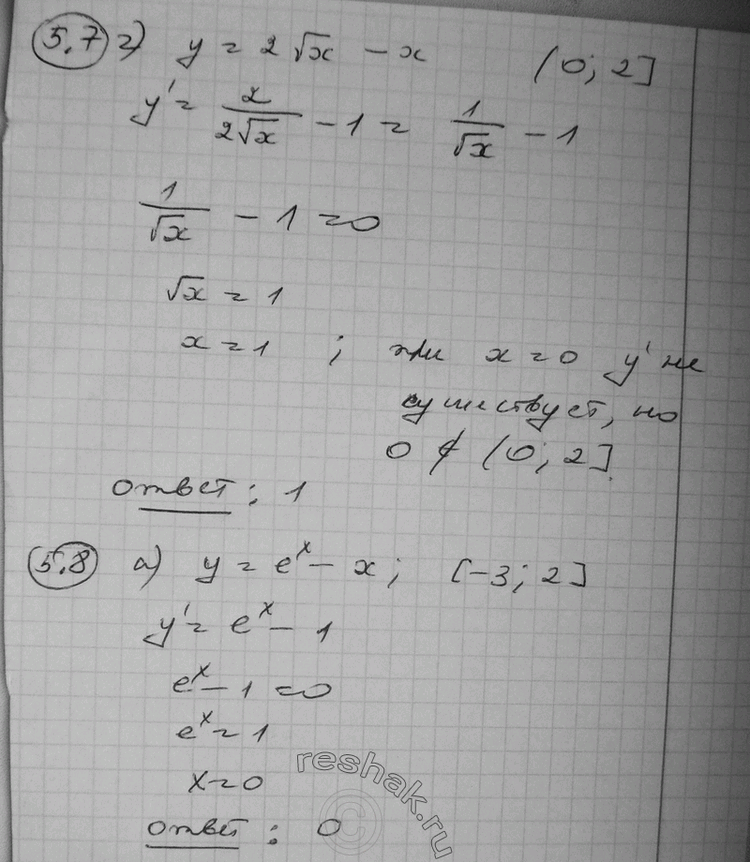 5.7 г) y = 2√x − x (0; 2]
y' = 2/(2√x) − 1 = 1/√x − 1
1/√x − 1 = 0
√x = 1
x = 1 ; при x = 0 y' не
существует, но
0 ∉ (0; 2].
Ответ: 1
5.8 а) y = eˣ − x; [−3; 2]
y' = eˣ − 1
eˣ − 1 = 0
eˣ = 1
x = 0
Ответ: 0
reshak.ru
©